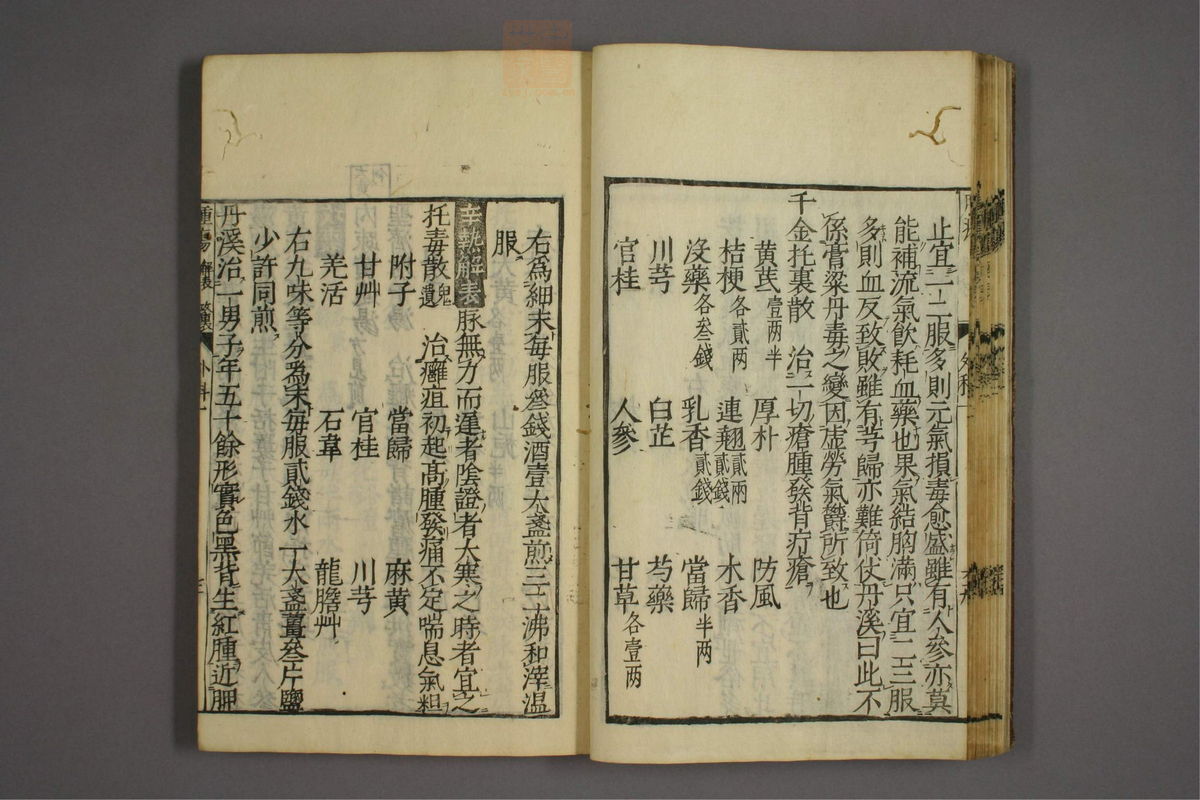 止宜一二服多則元氣損毒愈盛雖有人參亦莫
能補流氣飲耗血藥也果氣結胸滿只宜二三服
多則血反致敗雖有芎歸亦難倚仗丹溪曰此不
係膏粱丹毒之變因虛勞氣鬱所致也
千金托裏散 治一切瘡腫發背疔瘡
黄茋壹两半 厚朴 防風
桔梗各貳两 連翹貳兩貳錢 木香
沒藥各叁錢 乳香貳錢 當歸半两
川芎 白芷 芍藥
官桂 人參 甘草各壹两
右為細末每服叄錢酒壹大盞煎三二沸和滓温
服
辛熱解表 脉無力而遲者陰證者大寒之時者宜之
托毒散鬼遺 治癰疽初起高腫發痛不定喘息氣粗
附子 當歸 麻黄
甘艸 官桂 川芎
羌活 石韋 龍膽艸
右九味等分為末每服貳錢水一大盞薑叄片鹽
少許同煎
丹溪治一男子年五十餘形實色黑背生紅腫近胛
外科一